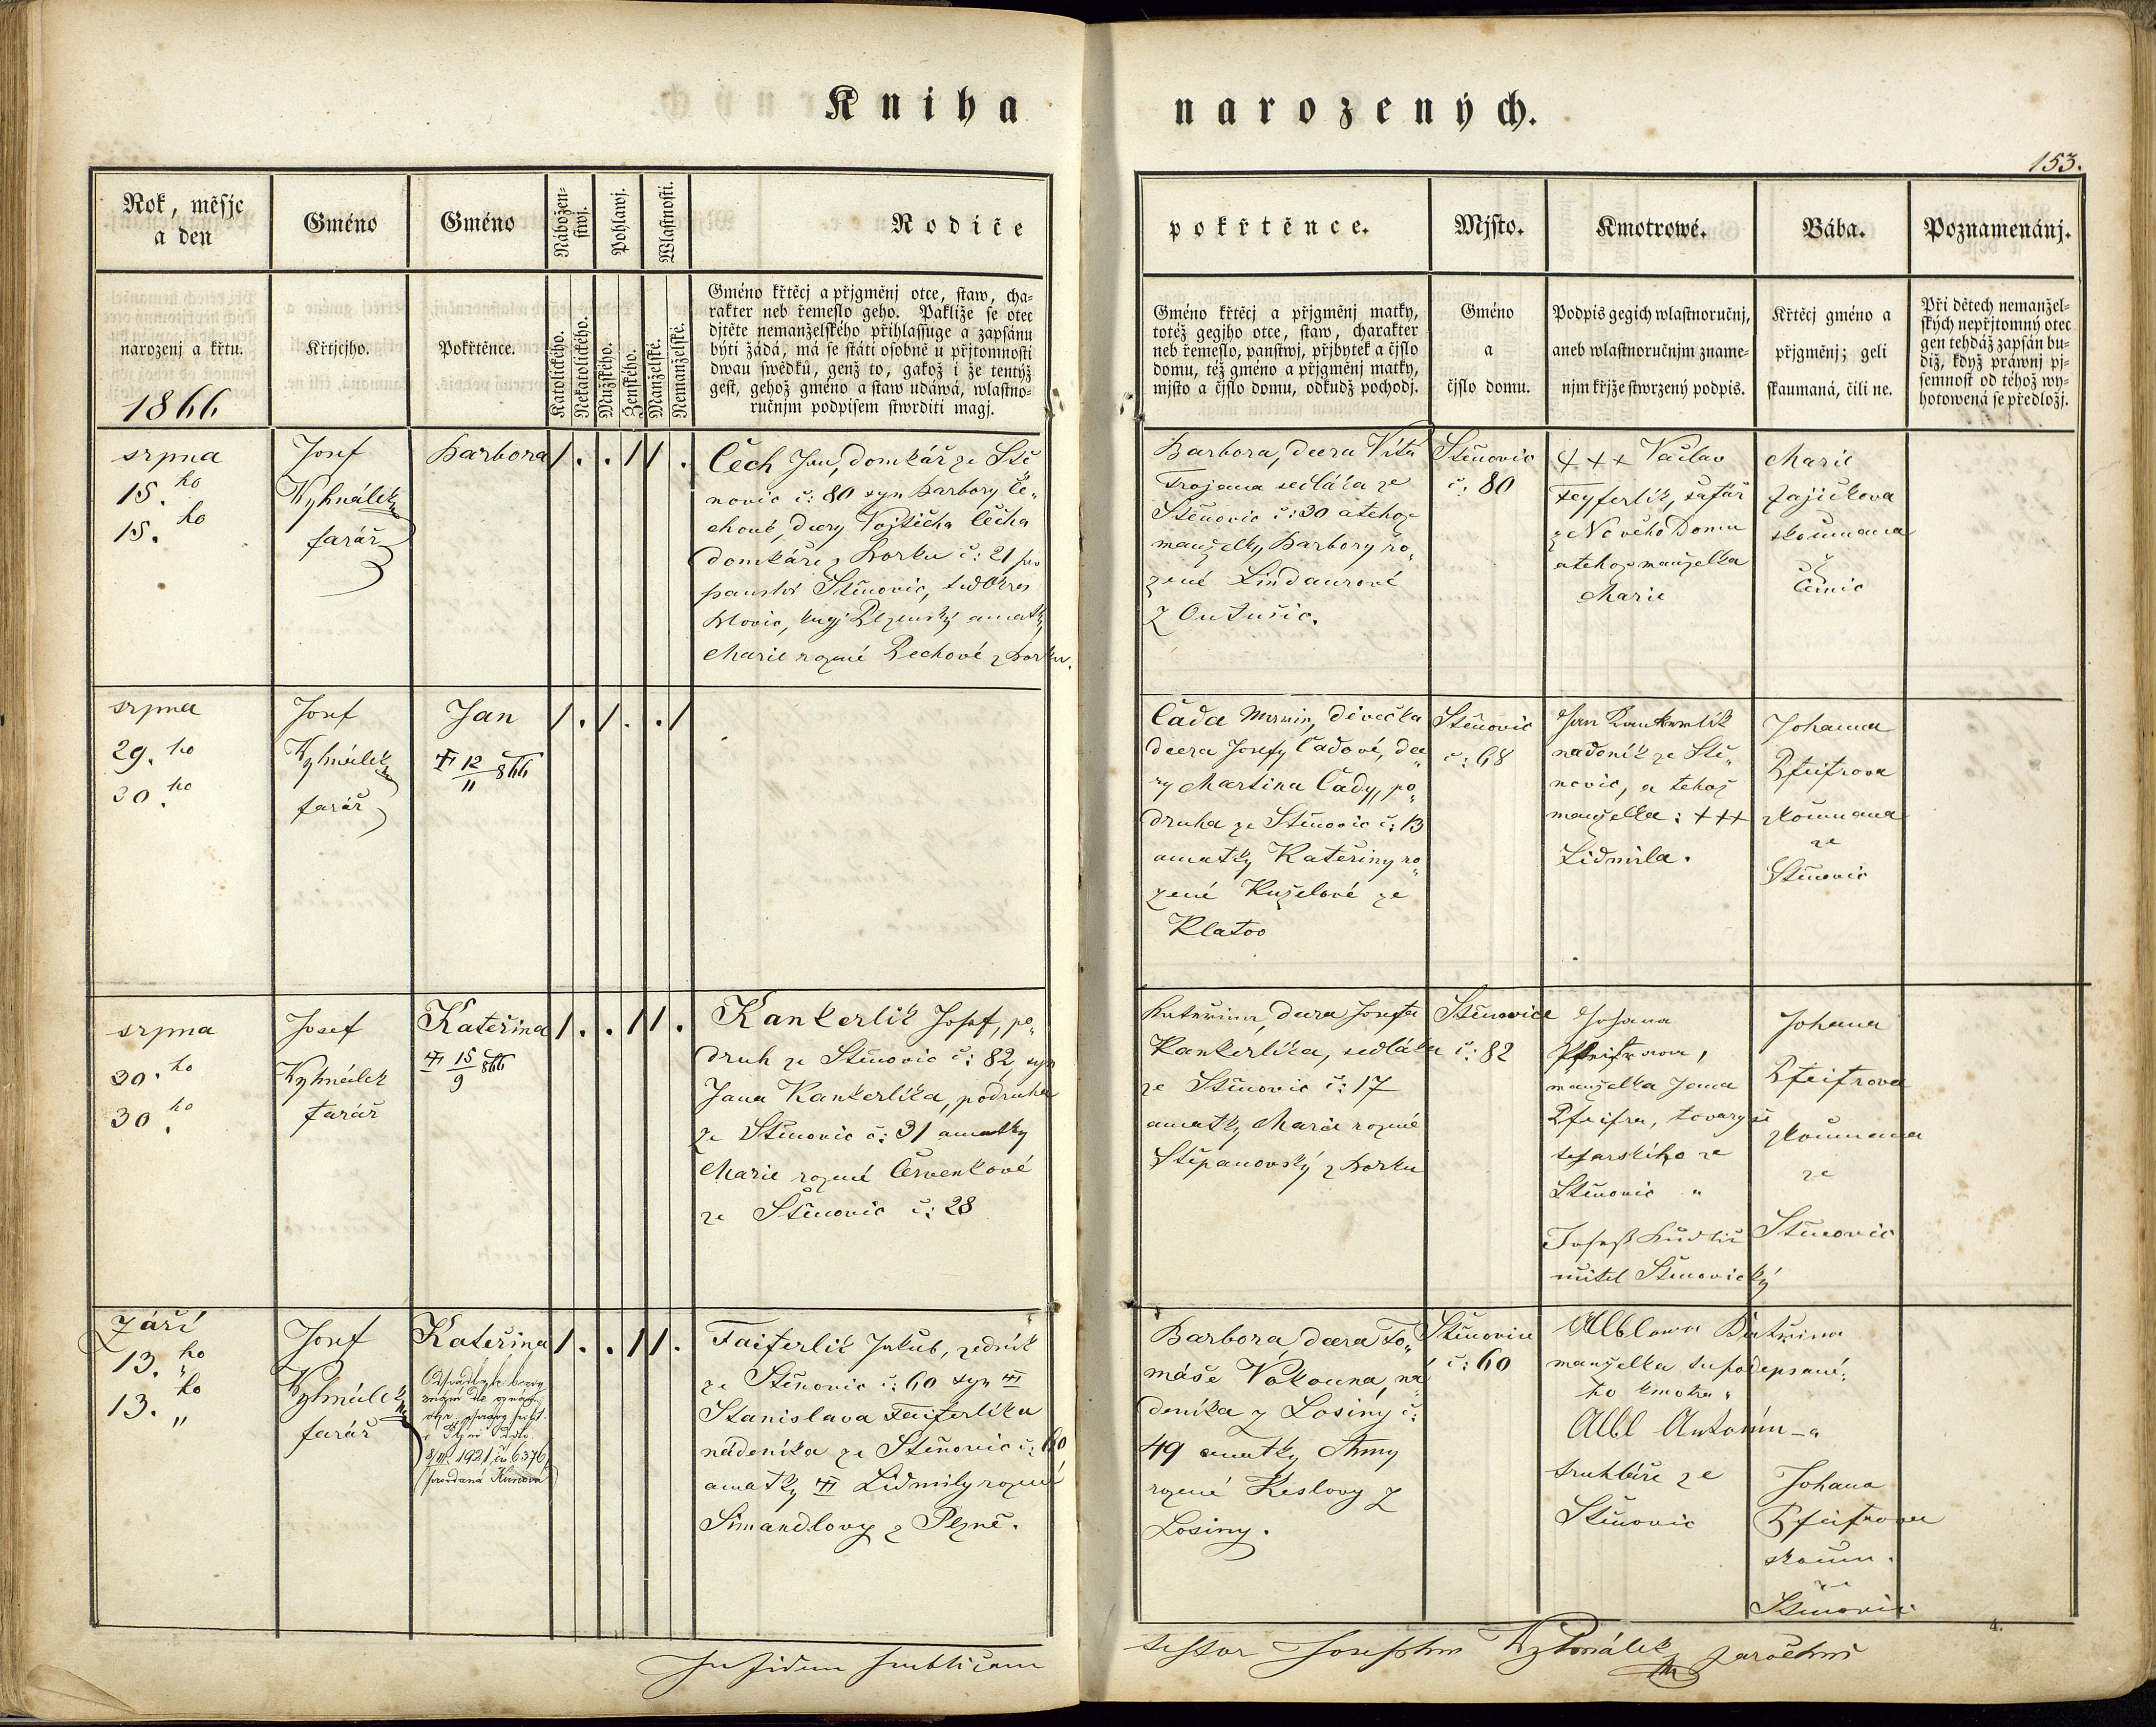 Kniha narozených.
153.
Rok, měsjc
a den
narozenj a křtu.
1866
Gméno
Křtjcjho.
Gméno
Pokřtěnce.
Nábožen-
stwj.
Katolického.
Nekatolického.
Pohlawj.
Mužského.
Ženského.
Wlastnosti.
Manželské.
Nemanželské.
Rodiče
Gméno křtěcj a přjgměnj otce, staw, cha-
rakter neb řemeslo geho. Pakliže se otec
djtěte nemanželského přihlassuge a zapsánu
býti žádá, má se státi osobně u přjtomnosti
dwau swědků, genž to, gakož i že tentýž
gest, gehož gméno a staw udáwá, wlastno-
ručnjm podpisem stwrditi magj.
pokřtěnce.
Gméno křtěcj a přjgměnj matky,
totéž gegjho otce, staw, charakter
neb řemeslo, panstwj, přjbytek a čjslo
domu, též gméno a přjgměnj matky,
mjsto a čjslo domu, odkudž pochodj.
Mjsto.
Gméno
a
čjslo domu.
Kmotrowé.
Podpis gegich wlastnoručnj,
aneb wlastnoručnjm zname-
njm křjže stwrzený podpis.
Bába.
Křtěcj gméno a
přjgměnj; geli
skaumaná, čili ne.
Poznamenánj.
Při dětech nemanžel-
ských nepřjtomný otec
gen tehdáž zapsán bu-
diž, když práwnj pj-
semnost od téhož wy-
hotowená se předložj.
srpna
15. ho
15. ho
Josef
Wyhnálek
farář
Barbora
1 . . 1 1 .
Čech Jan, domkář ze Ště
novic č: 80 syn Barbory Če„
chové, dcery Vojtěcha Čecha
domkáře z Borku č: 21
panství Štěnovic,
Blovic, Plzenský a matky
Marie rozené Pechové z Borku.
Barbora, dcera Víta
Trojana sedláka ze
Štěnovic č: 30 a tehož
manželky Barbory ro„
zené Lindaurové
z Outušic.
Štěnovic
č: 80
+++ Vačlav
Feyferlík, šafář
z Nového Domu
a tehož manželka
Marie
Marie
Zajíčkova
skoumana
z
Čěmic
srpna
29. ho
30. ho
Josef
Wyhnálek
farář
Jan
12/11 866
1 . 1 . . 1
Čada, děvečka
dcera Josefy Čadové, dce„
ry Martina Čady, po„
druha ze Štěnovic č: 13
a matky Kateřiny ro„
zené Kuželové ze
Klatov
Štěnovic
č: 68
Jan Kankrlík
nadeník ze Ště„
novic, a tehož
manželka: +++
Lidmila.
Johanna
Pfeifrova
skoumana
ze
Štěnovic
srpna
30. ho
30. ho
Josef
Wyhnálek
farář
Kateřina
15/9 866
1 . . 1 1 .
Kankerlík Josef, po„
druh ze Štěnovic č: 82, syn
Jana Kankerlíka, podruha
ze Štěnovic č: 31 a matky
Marie rozené Červenkové
ze Štěnovic č: 28
Kateřina, dcera Josefa
Kankerlíka, sedláka
ze Štěnovic č: 17
a matky Marie rozené
Štěpanovský z Borku
Štěnovice
č: 82
Johana
Pfeifrova,
manželka Jana
Pfeifra, tovaryše
tesarského ze
Štěnovic "
učitel Štěnovický
Johana
Pfeifrova
skoumana
ze
Štěnovic
Září
13. ho
13. ho
Josef
Wyhnálek
farář
Kateřina
1921, č. 6376
1 . . 1 1 .
Faiferlík Jakub, zedník
ze Štěnovic č: 60 syn
Stanislava Faiferlíka
nádeníka ze Štěnovic č: 60
a matky Lidmily rozené
Šimandlovy z Plzně.
Barbora, dcera To„
máše Vokouna, ná
deníka z Losiny č:
49 a matky Anny
rozené Keslovy z
Losiny.
Štěnovice
č: 60
Alblowa Kateřina
manželka tu podepsané„
ho kmotra "
Albl Antonín
truhláře ze
Štěnovic
Johana
Pfeifrova
skoum.
ze
Štěnovic
4.
In fidem publicam
testor Josephus Wyhnálek parochus